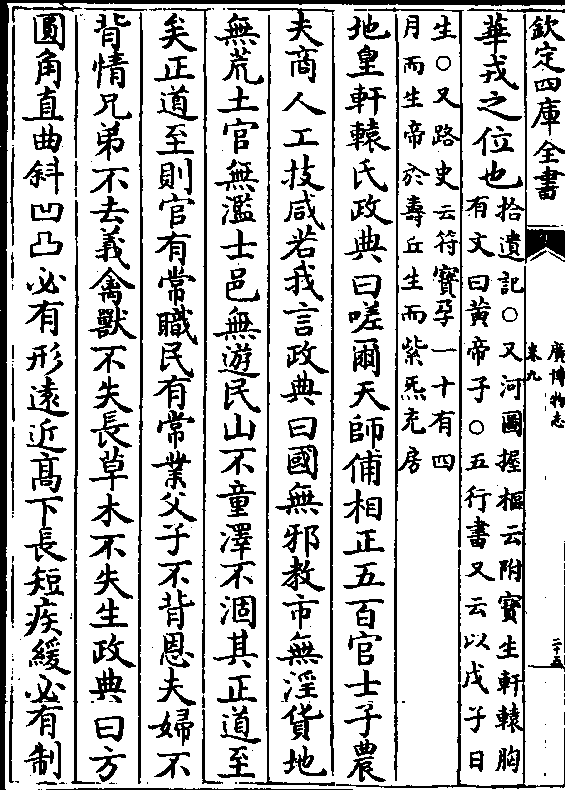 欽定四庫全書
廣博物志
卷九
二十五
華戎之位也
拾遺記○又河圖握樞云附寶生軒轅胸
有文曰黃帝子○五行書又云以戊子日
生○又路史云符寶孕一十有四
月而生帝於壽丘生而紫炁充房
地皇軒轅氏政典曰嗟爾天師俌相正五百官士子農
夫商人工技咸若我言政典曰國無邪教市無淫貨地
無荒土官無濫士邑無遊民山不童澤不涸其正道至
矣正道至則官有常職民有常業父子不背恩夫婦不
背情兄弟不去義禽獸不失長草木不失生政典曰方
圓角直曲斜凹凸必有形遠近高下長短疾緩必有制